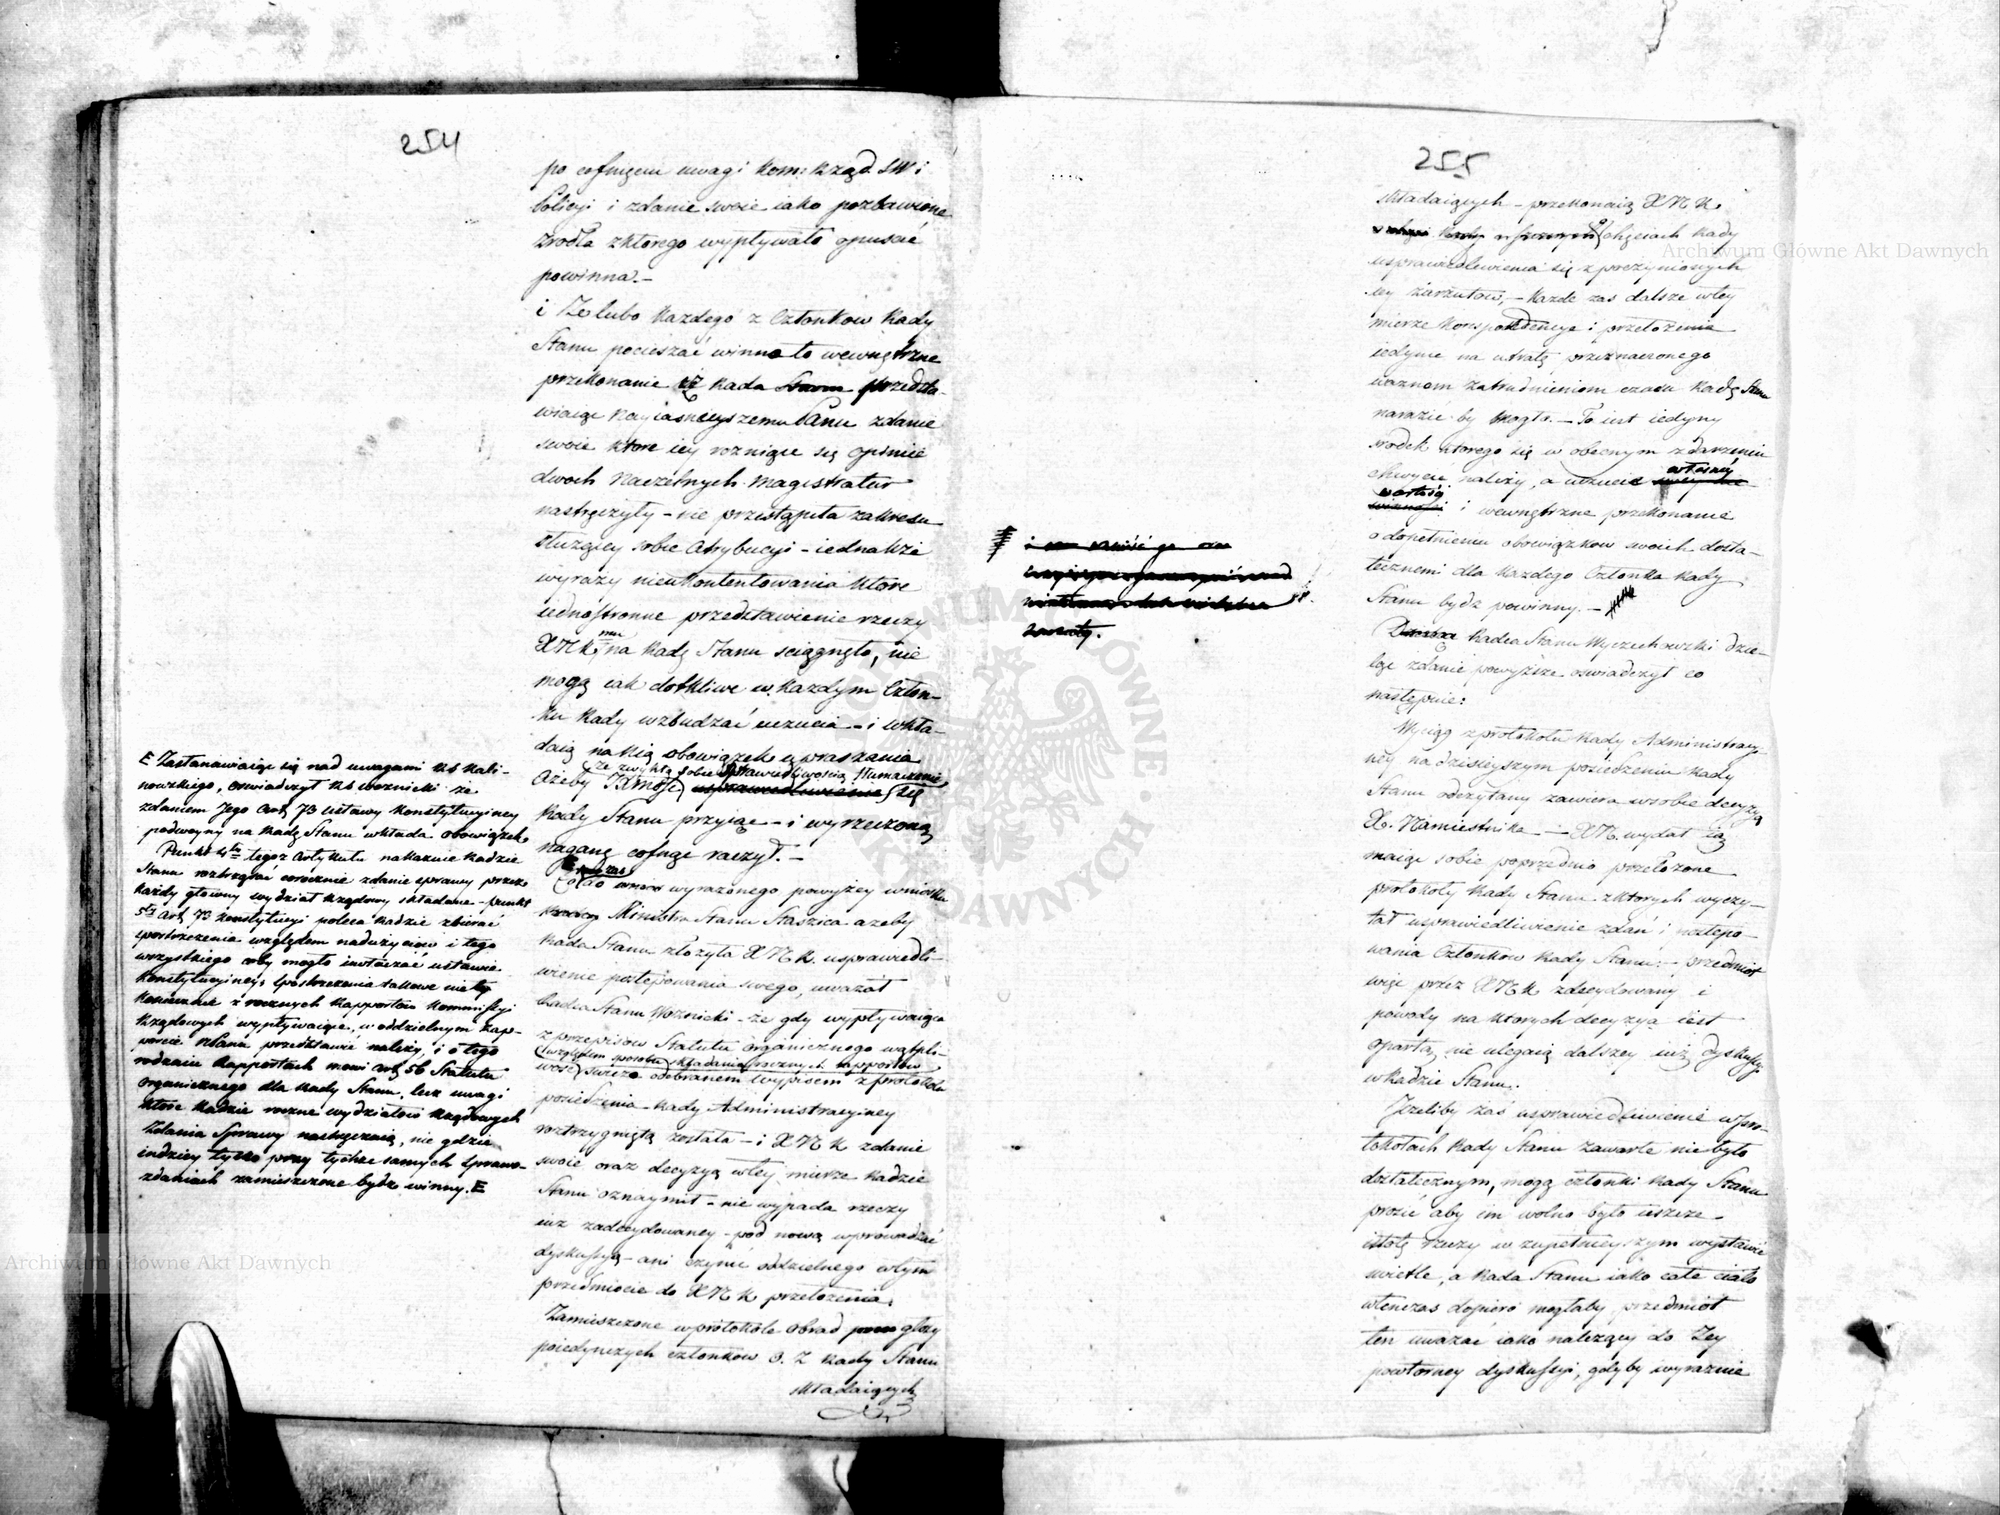 254
po cofnięciu uwagi Kom: Rząd. SW i
Policyi i zdanie swoie iako pozbawione
zrodła z ktorego wypływało opuścić
powinna.—
i Ze lubo Kazdego z Członkow Rady
Stanu pocieszać winno to wewnętrzne
przekonanie iż Rada Stanu przedsta-
wiaiąc Nayiaśnieyszemu Panu zdanie
swoie ktore iey rozniące się opinie
dwoch Naczelnych Magistratur
nastręczyły — nie przestąpiła zakresu
służącey sobie Atrybucyi — iednakże
wyrazy nieukontentowania ktore
iednostronne przedstawienie rzeczy
XNK mu na Radę Stanu sciągnęło, nie
mogą iak dotkliwe w każdym Człon-
ku Rady wzbudzać uczucia — i wkła-
daią na Nią obowiązek upraszania
Ażeby JXMość ze zwykłą sobie sprawiedliwością tłumaczenie się
Rady Stanu przyiąć — i wyrzeczoną
naganę cofnąć raczył. —
Co do wyrażonego powyżey wniosku
Ministra Stanu Staszica azeby
Rada Stanu złożyła XNK. usprawiedli-
wienie postępowania swego, uważał
Radca Stanu Woznicki — że gdy wypływaiąca
z przepisow Statutu organicznego wątpli-
wość względem sposobu składania rocznych rapportow
swieżo odebranem wypisem z protokołu
posiedzenia Rady Administracyiney
roztrzygniętą została — i XNK zdanie
swoie oraz decyzyą w tey mierze Radzie
Stanu oznaymił — nie wypada rzeczy
iuz zadecydowaney — pod nową wprowadzać
dyskussyą — ani czynić oddzielnego w tym
przedmiocie do XNK przełożenia.
Zamieszczone w protokole obrad głosy
poiedynczych członkow O. Z Rady Stanu
składaiących
E Zastanawiaiąc się nad uwagami RS Kali-
nowskiego, oswiadczył RS Woznicki że
zdaniem Jego Art 73 Ustawy Konstytucyiney
podwoyny na Radę Stanu wkłada obowiązek.
Punkt 4ty tegoż Artykułu nakazuie Radzie
Stanu roztrząsać corocznie zdanie sprawy przez
każdy główny wydział rządowy składane — punkt
5ty Art 73 Konstytucyi poleca Radzie zbierać
spostrzeżenia względem nadużyciow i tego
wszystkiego coby mogło ubliżać ustawie
Konstytucyiney; spostrzeżenia takowe nie tey
koniecznie z rocznych Rapportow Kommissyi
Rządowych wypływaiące, w oddzielnym Rap-
porcie Rada przedstawić należy, i o tego
rodzaiu Rapportach mowi art: 56 Statutu
Organicznego dla Rady Stanu, lecz uwagi
ktore Radzie roczne wydziałow Rządowych
Zdania Sprawy nastręczaią, nie gdzie
indziey tylko przy tychże samych Sprawo-
zdaniach zamieszczone bydz winny. E
255
składaiących — przekonaią XNK.
o chęciach Rady
usprawiedliwienia się z poczynionych
iey zarzutow, — Każde zas dalsze w tey
mierze Korrespondencye i przełożenia
iedynie na utratę przeznaczonego
ważnym zatrudnieniom czasu Radę Stanu
narazić by mogło. — To iest iedyny
środek ktorego się w obecnym zdarzeniu
chwycić należy, a uczucie własney
wartości i wewnętrzne przekonanie
o dopełnieniu obowiązkow swoich dosta-
tecznemi dla Każdego Członka Rady
Stanu bydz powinny. —
Radca Stanu Wyczechowski dzie-
ląc zdanie powyższe oswiadczył co
następuie:
Wyciąg z protokołu Rady Administracy-
iney na dzisieyszym posiedzeniu Rady
Stanu odczytany zawiera w sobie decyzyą
X. Namiestnika — XN. wydał ią
maiąc sobie poprzednio przełożone
protokoły Rady Stanu z ktorych wyczy-
tał usprawiedliwienie zdań i postępo-
wania Członkow Rady Stanu: — przedmiot
więc przez XNK zdecydowany i
powody na ktorych decyzya iest
oparta, nie ulegaią dalszey iuż dyskussyi
w Radzie Stanu.
Jeżeliby zaś usprawiedliwienie w pro-
tokołach Rady Stanu zawarte nie było
dostatecznym, mogą członki Rady Stanu
prosić aby im wolno było ieszcze
istotę rzeczy w zupełnieyszym wystawić
świetle, a Rada Stanu iako całe ciało
wtenczas dopiero mogłaby przedmiot
ten uważać iako należący do Jey
powtorney dyskussyi, gdyby wyraźnie
Archiwum Główne Akt Dawnych
Archiwum Główne Akt Dawnych